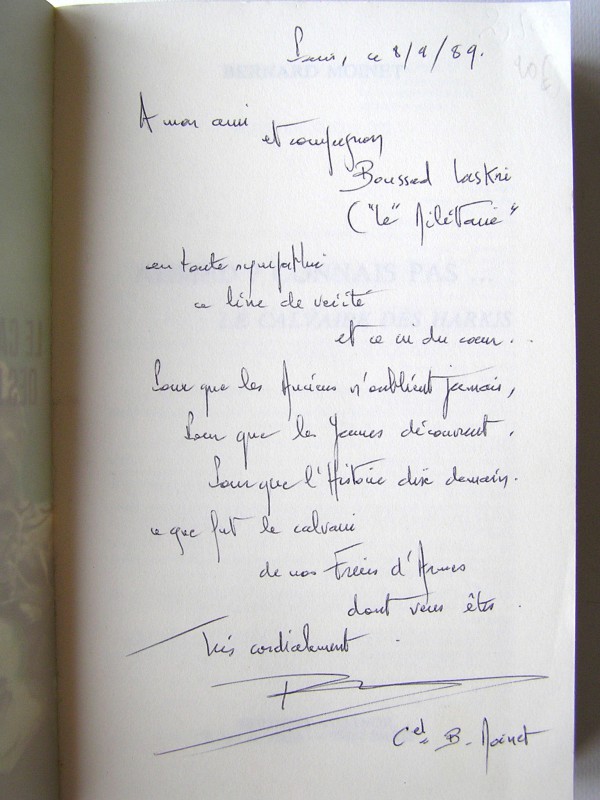 Paris, ce 8/9/89.
BERNARD MOINET
A mon ami
et compagnon
Boussad Laskri
("le" Militant"
en toute sympathie
ce livre de vérité
CONNAIS PAS ...
et ce cri du cœur...
LE CALVAIRE DES HARKIS
Pour que les Anciens n'oublient jamais,
Pour que les Jeunes découvrent,
Pour que l'Histoire dise demain.
ce que fut le calvaire
de nos Frères d'Armes
dont vous êtes.
Très cordialement.
Cel. B. Moinet